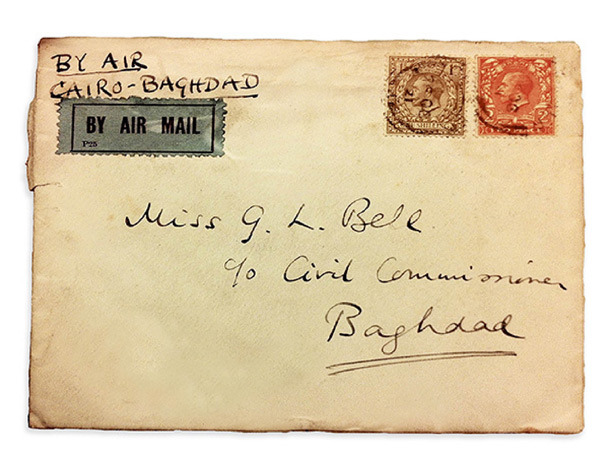 BY AIR
CAIRO-BAGHDAD
BY AIR MAIL
P25
Miss G. L. Bell
c/o Civil Commissioner
Baghdad